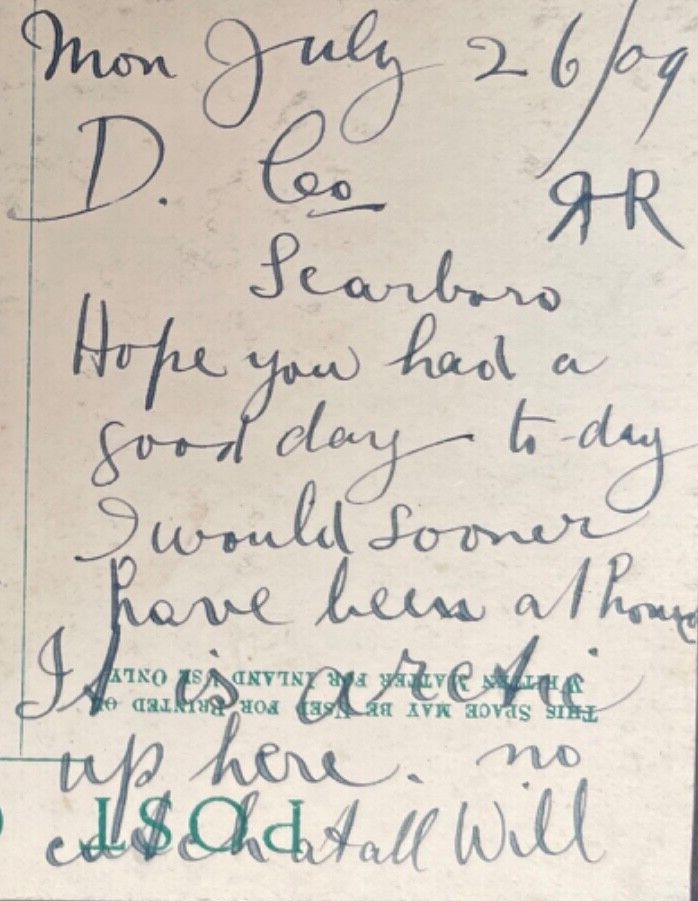 Mon July 26/09
D. Geo
Scarboro
Hope you had a
good day to-day
I would sooner
have been at home
It is arctic
up here. no
catch at all Will
POST
THIS SPACE MAY BE USED FOR PRINTED OR
WRITTEN MATTER FOR INLAND USE ONLY